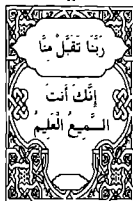 رَبَّنَا تَقَبَّل مِنَّا
إِنَّكَ أَنتَ
السَّمِيعُ الْعَلِيمُ